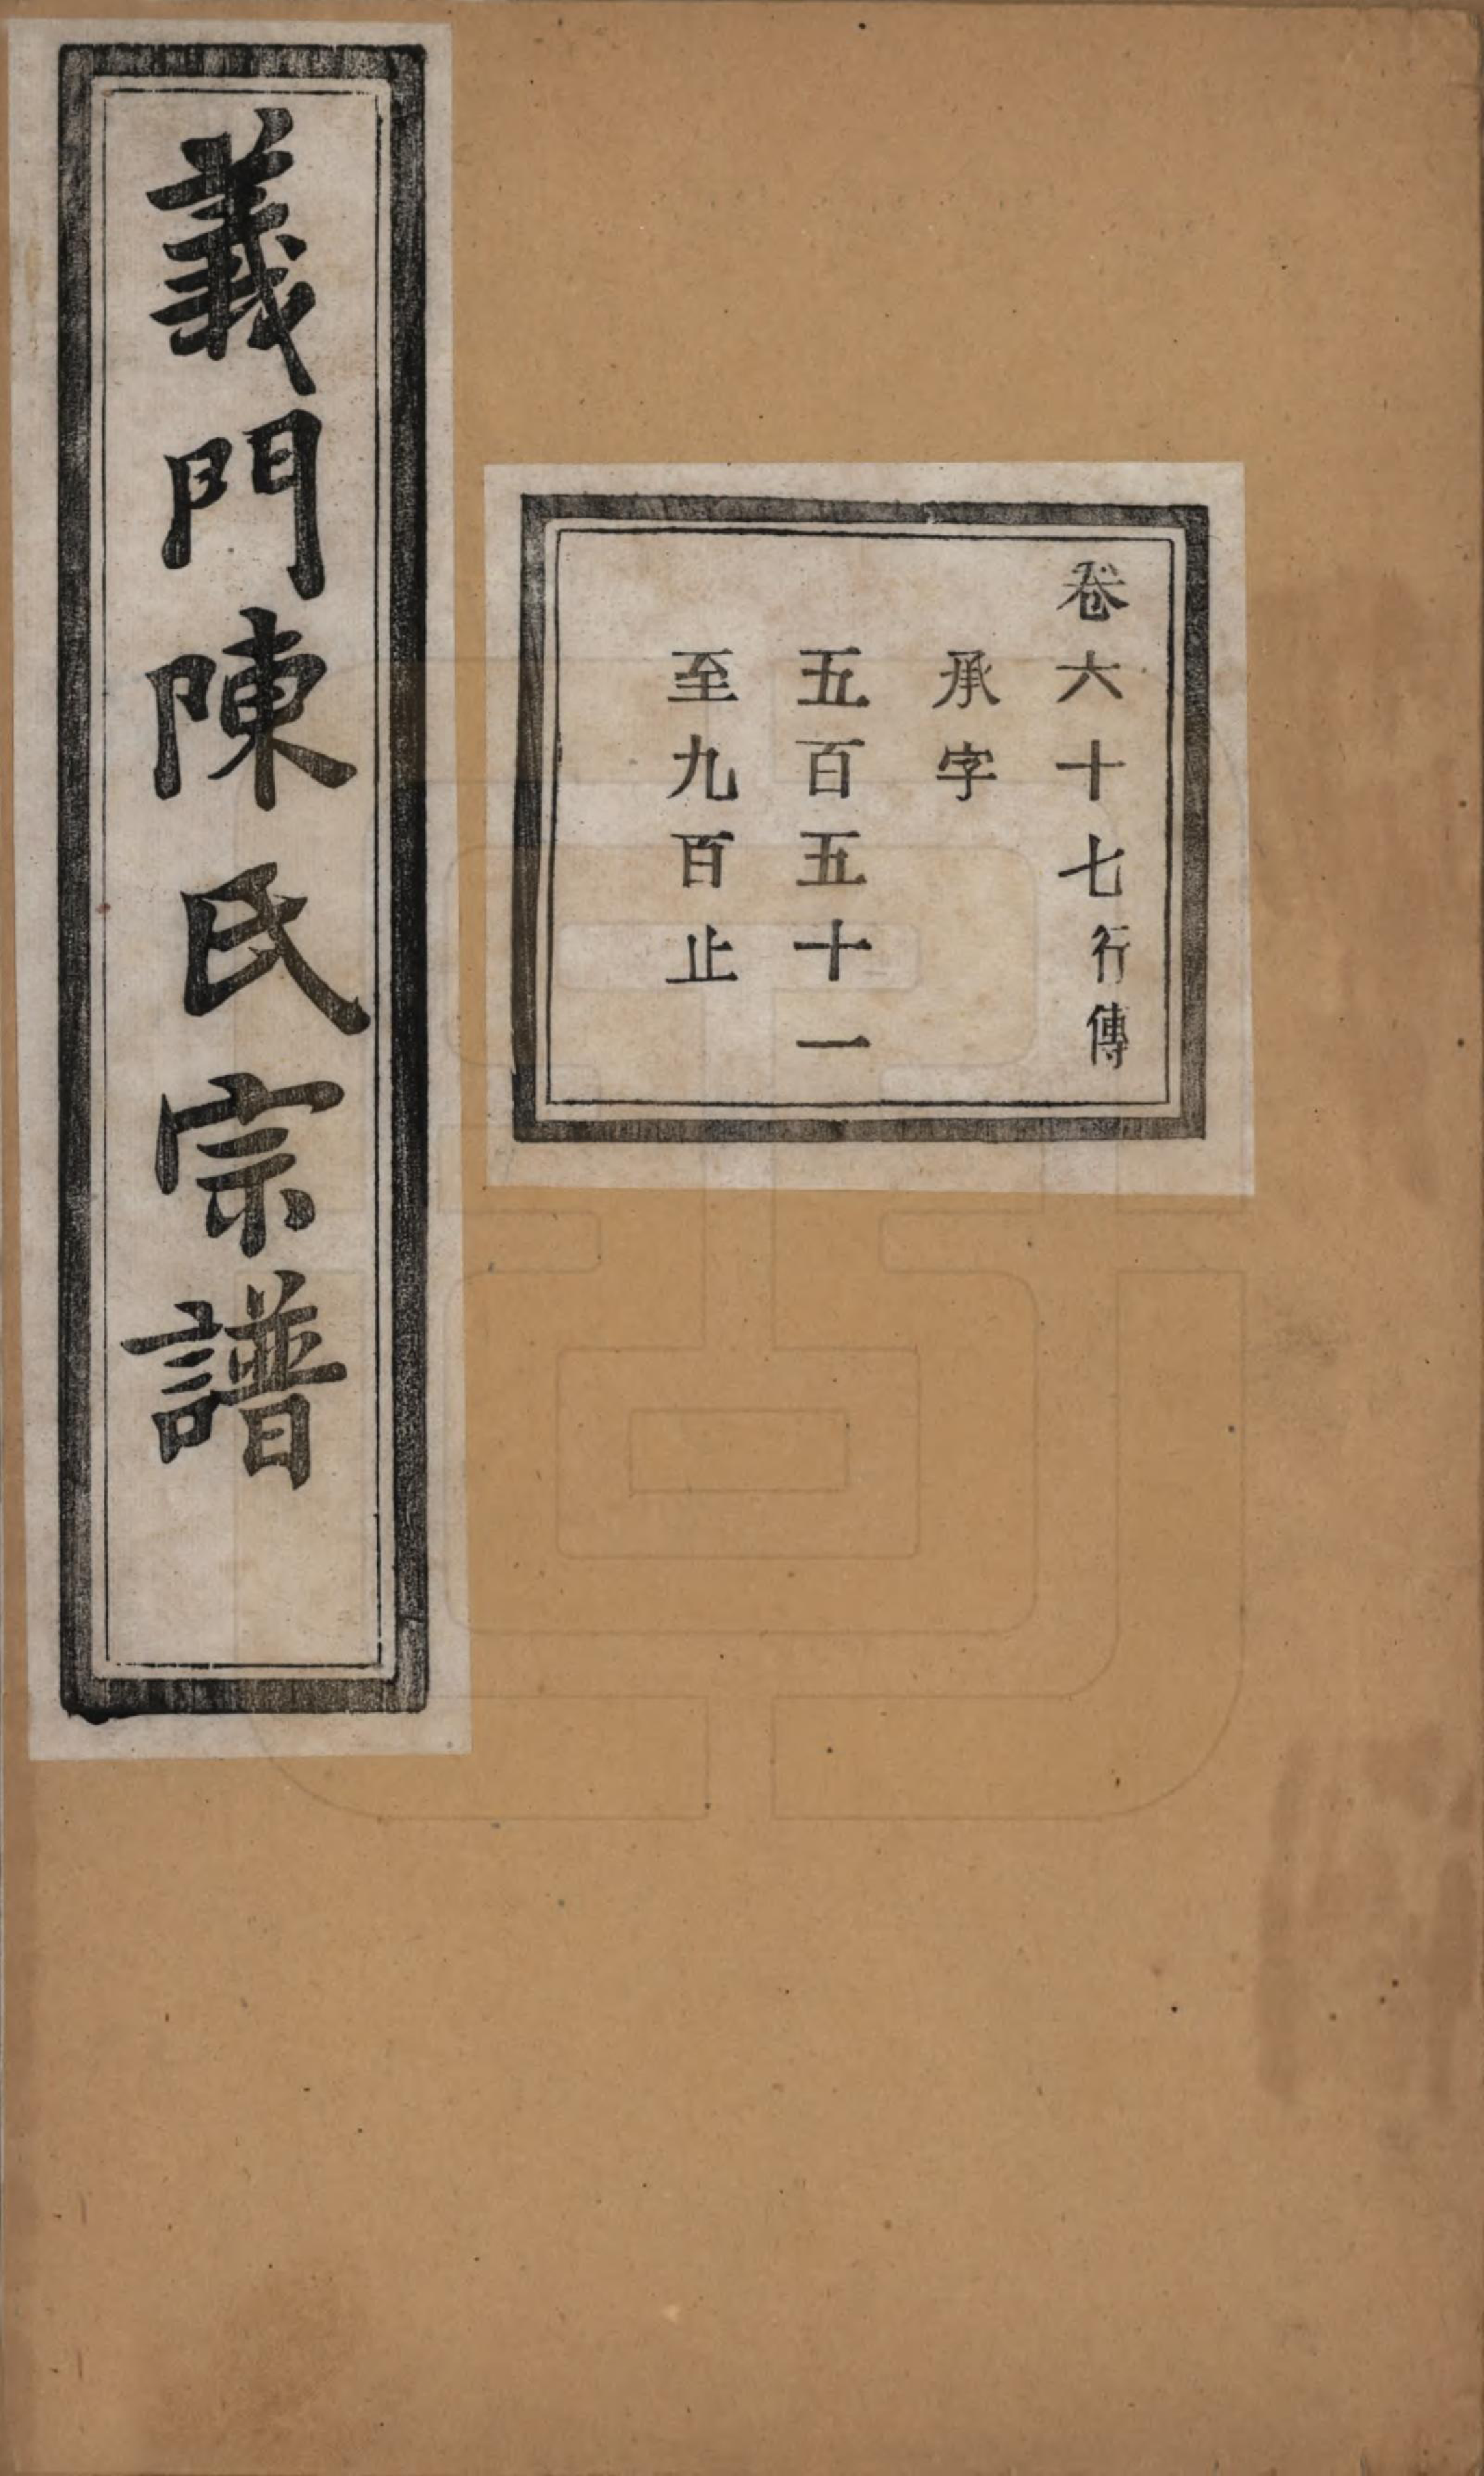 義門陳氏宗譜
卷六十七行傳
承字
五百五十一
至九百止